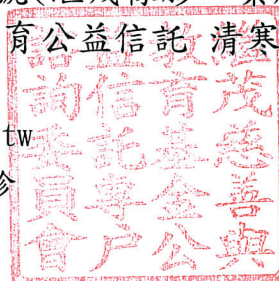 育公益信託 清寒
tw
茂慈善與
教育基金公
益信託專戶
諮詢委員會